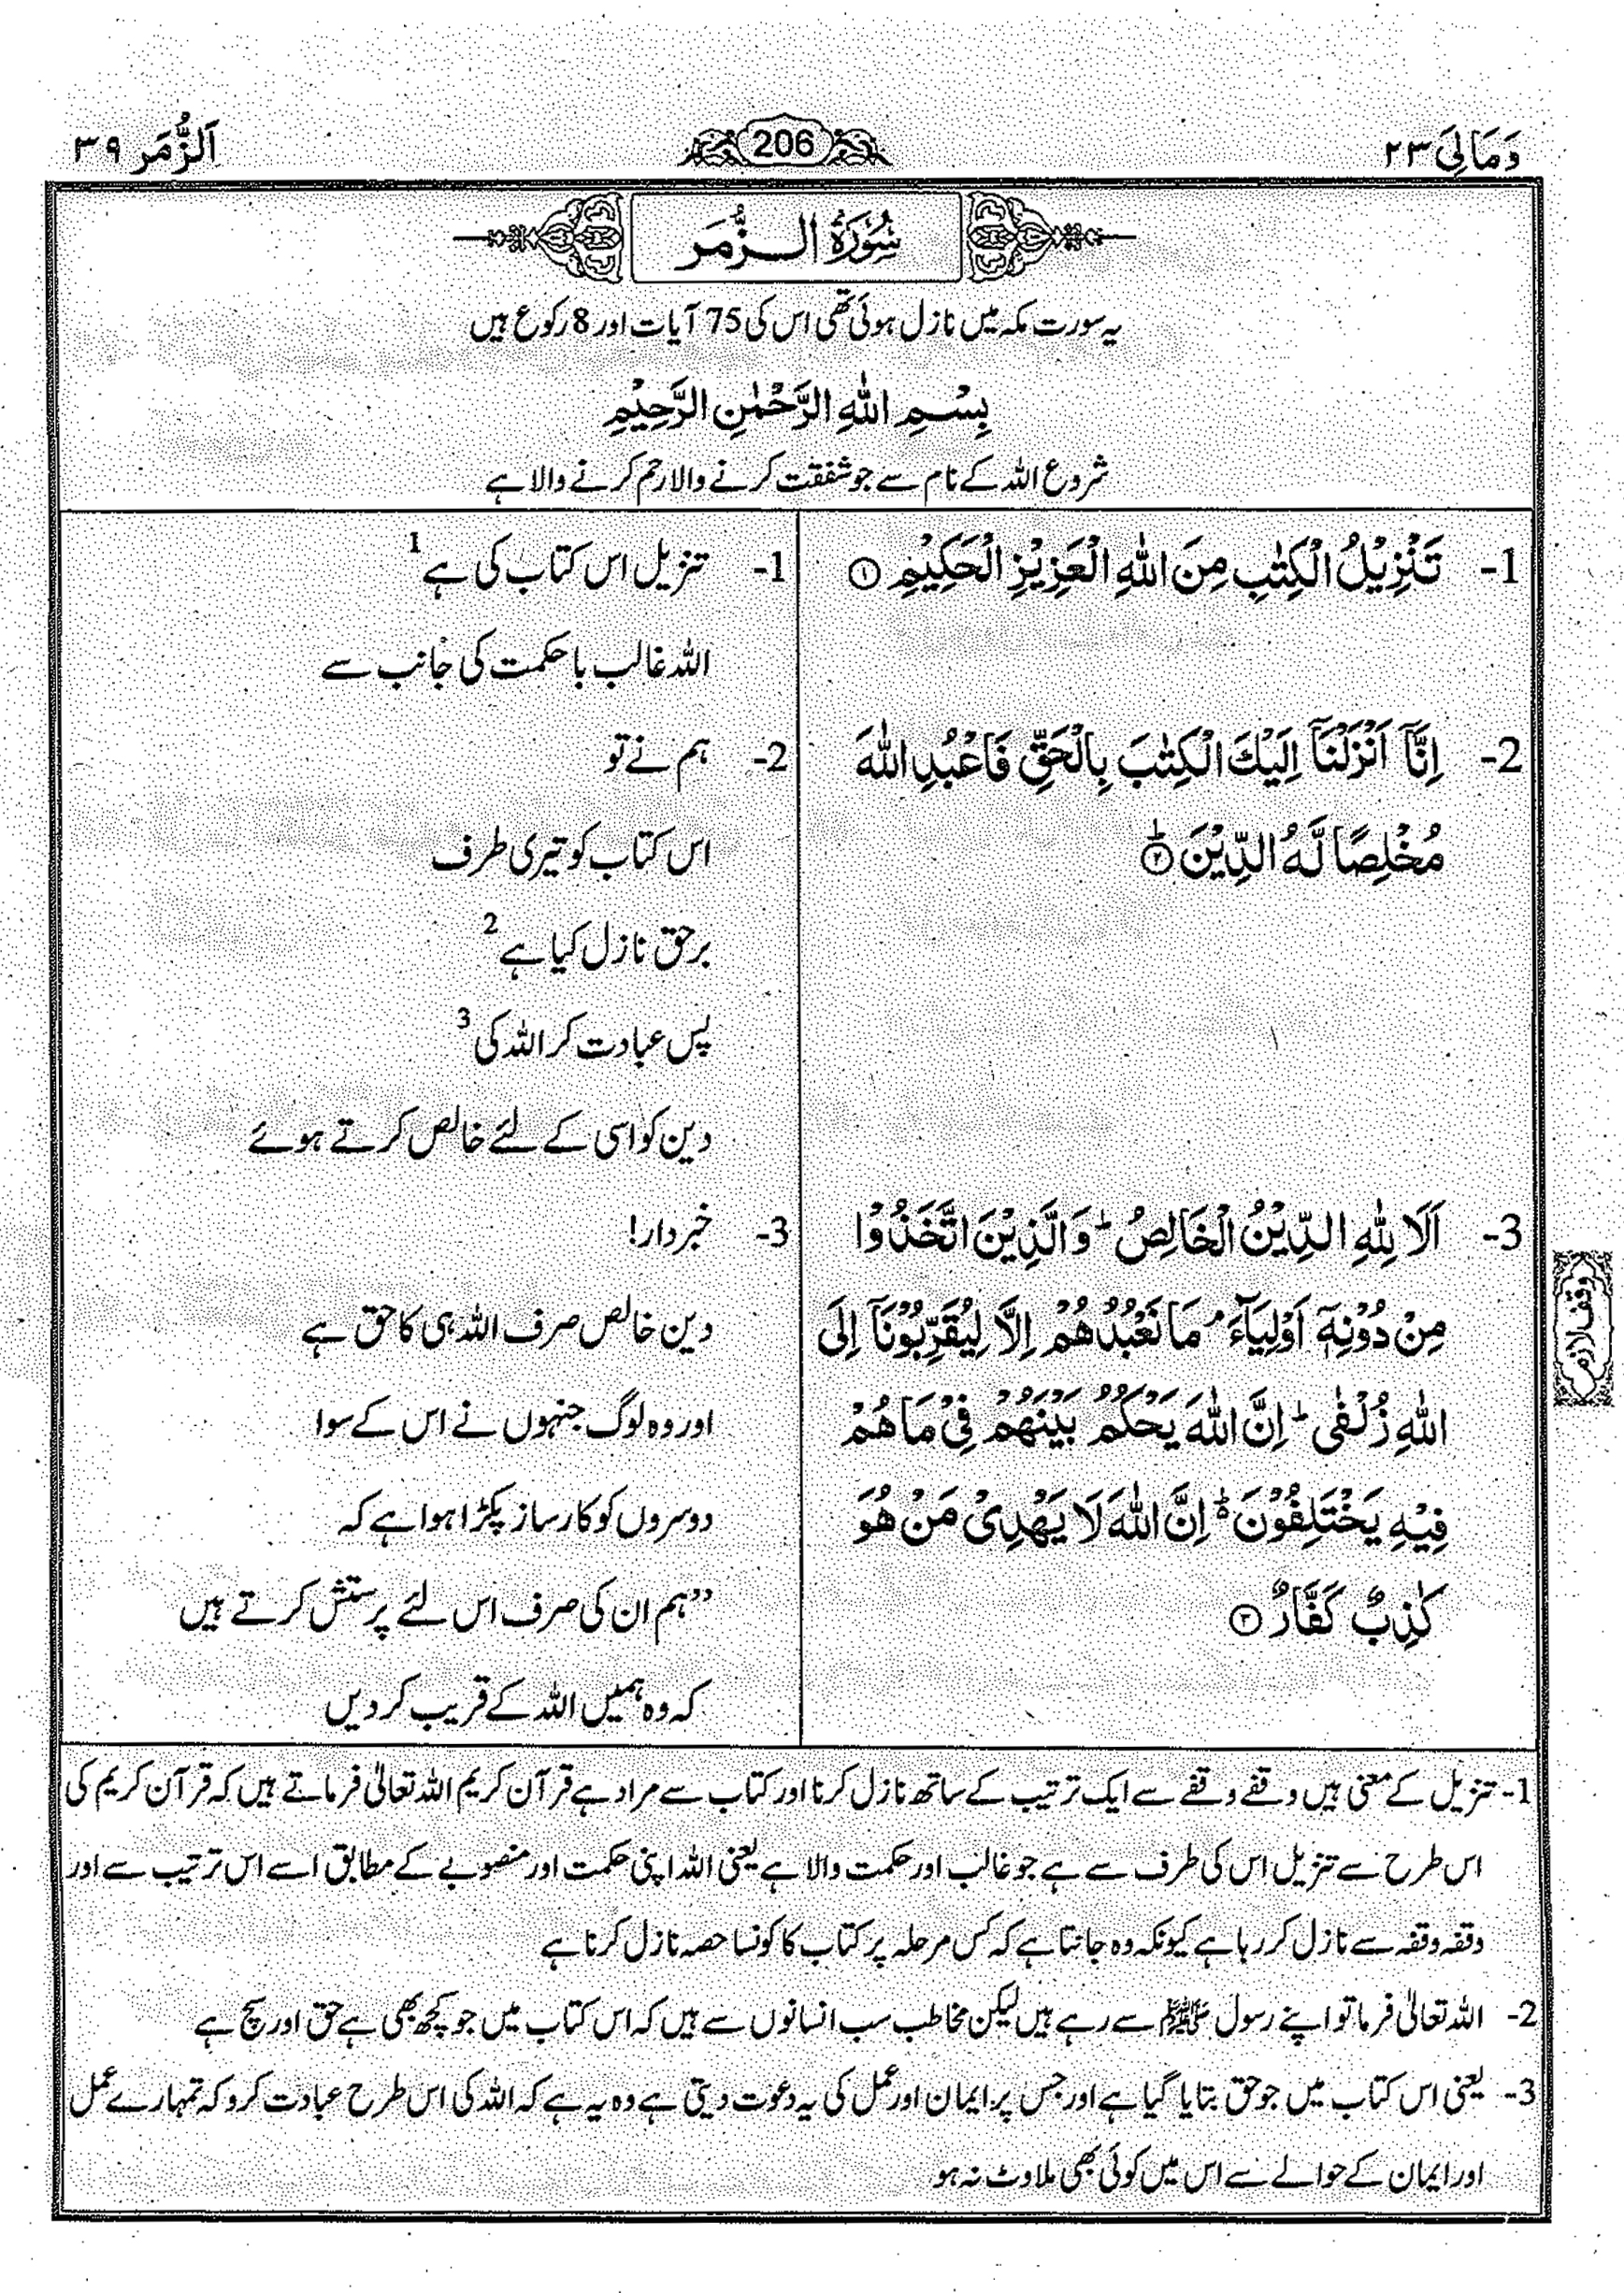 وَمَالِیَ ۲۳
206
اَلزُّمَر ۳۹
سُوْرَةُ الزُّمَر
یہ سورت مکہ میں نازل ہوئی تھی اس کی 75 آیات اور 8 رکوع ہیں
بِسْمِ اللّٰهِ الرَّحْمٰنِ الرَّحِيْمِ
شروع اللہ کے نام سے جو شفقت کرنے والا رحم کرنے والا ہے
1- تَنْزِيْلُ الْكِتٰبِ مِنَ اللّٰهِ الْعَزِيْزِ الْحَكِيْمِ ①
2- اِنَّآ اَنْزَلْنَآ اِلَيْكَ الْكِتٰبَ بِالْحَقِّ فَاعْبُدِ اللّٰهَ
مُخْلِصًا لَّهُ الدِّيْنَ ؕ②
3- اَلَا لِلّٰهِ الدِّيْنُ الْخَالِصُ ؕ وَالَّذِيْنَ اتَّخَذُوْا
مِنْ دُوْنِهٖٓ اَوْلِيَآءَ ۘ مَا نَعْبُدُهُمْ اِلَّا لِيُقَرِّبُوْنَآ اِلَى
اللّٰهِ زُلْفٰى ؕ اِنَّ اللّٰهَ يَحْكُمُ بَيْنَهُمْ فِيْ مَا هُمْ
فِيْهِ يَخْتَلِفُوْنَ ؕ۬ اِنَّ اللّٰهَ لَا يَهْدِيْ مَنْ هُوَ
كٰذِبٌ كَفَّارٌ ③
وقف لازم
1- تنزیل اس کتاب کی ہے 1
اللہ غالب باحکمت کی جانب سے
2- ہم نے تو
اس کتاب کو تیری طرف
برحق نازل کیا ہے 2
پس عبادت کر اللہ کی 3
دین کو اسی کے لئے خالص کرتے ہوئے
3- خبردار!
دین خالص صرف اللہ ہی کا حق ہے
اور وہ لوگ جنہوں نے اس کے سوا
دوسروں کو کارساز پکڑا ہوا ہے کہ
”ہم ان کی صرف اس لئے پرستش کرتے ہیں
کہ وہ ہمیں اللہ کے قریب کر دیں
1- تنزیل کے معنی ہیں وقفے وقفے سے ایک ترتیب کے ساتھ نازل کرنا اور کتاب سے مراد ہے قرآن کریم اللہ تعالیٰ فرماتے ہیں کہ قرآن کریم کی
اس طرح سے تنزیل اس کی طرف سے ہے جو غالب اور حکمت والا ہے یعنی اللہ اپنی حکمت اور منصوبے کے مطابق اسے اس ترتیب سے اور
وقفہ وقفہ سے نازل کر رہا ہے کیونکہ وہ جانتا ہے کہ کس مرحلہ پر کتاب کا کونسا حصہ نازل کرنا ہے
2- اللہ تعالیٰ فرما تو اپنے رسول ﷺ سے رہے ہیں لیکن مخاطب سب انسانوں سے ہیں کہ اس کتاب میں جو کچھ بھی ہے حق اور سچ ہے
3- یعنی اس کتاب میں جو حق بتایا گیا ہے اور جس پر ایمان اور عمل کی یہ دعوت دیتی ہے وہ یہ ہے کہ اللہ کی اس طرح عبادت کرو کہ تمہارے عمل
اور ایمان کے حوالے سے اس میں کوئی بھی ملاوٹ نہ ہو